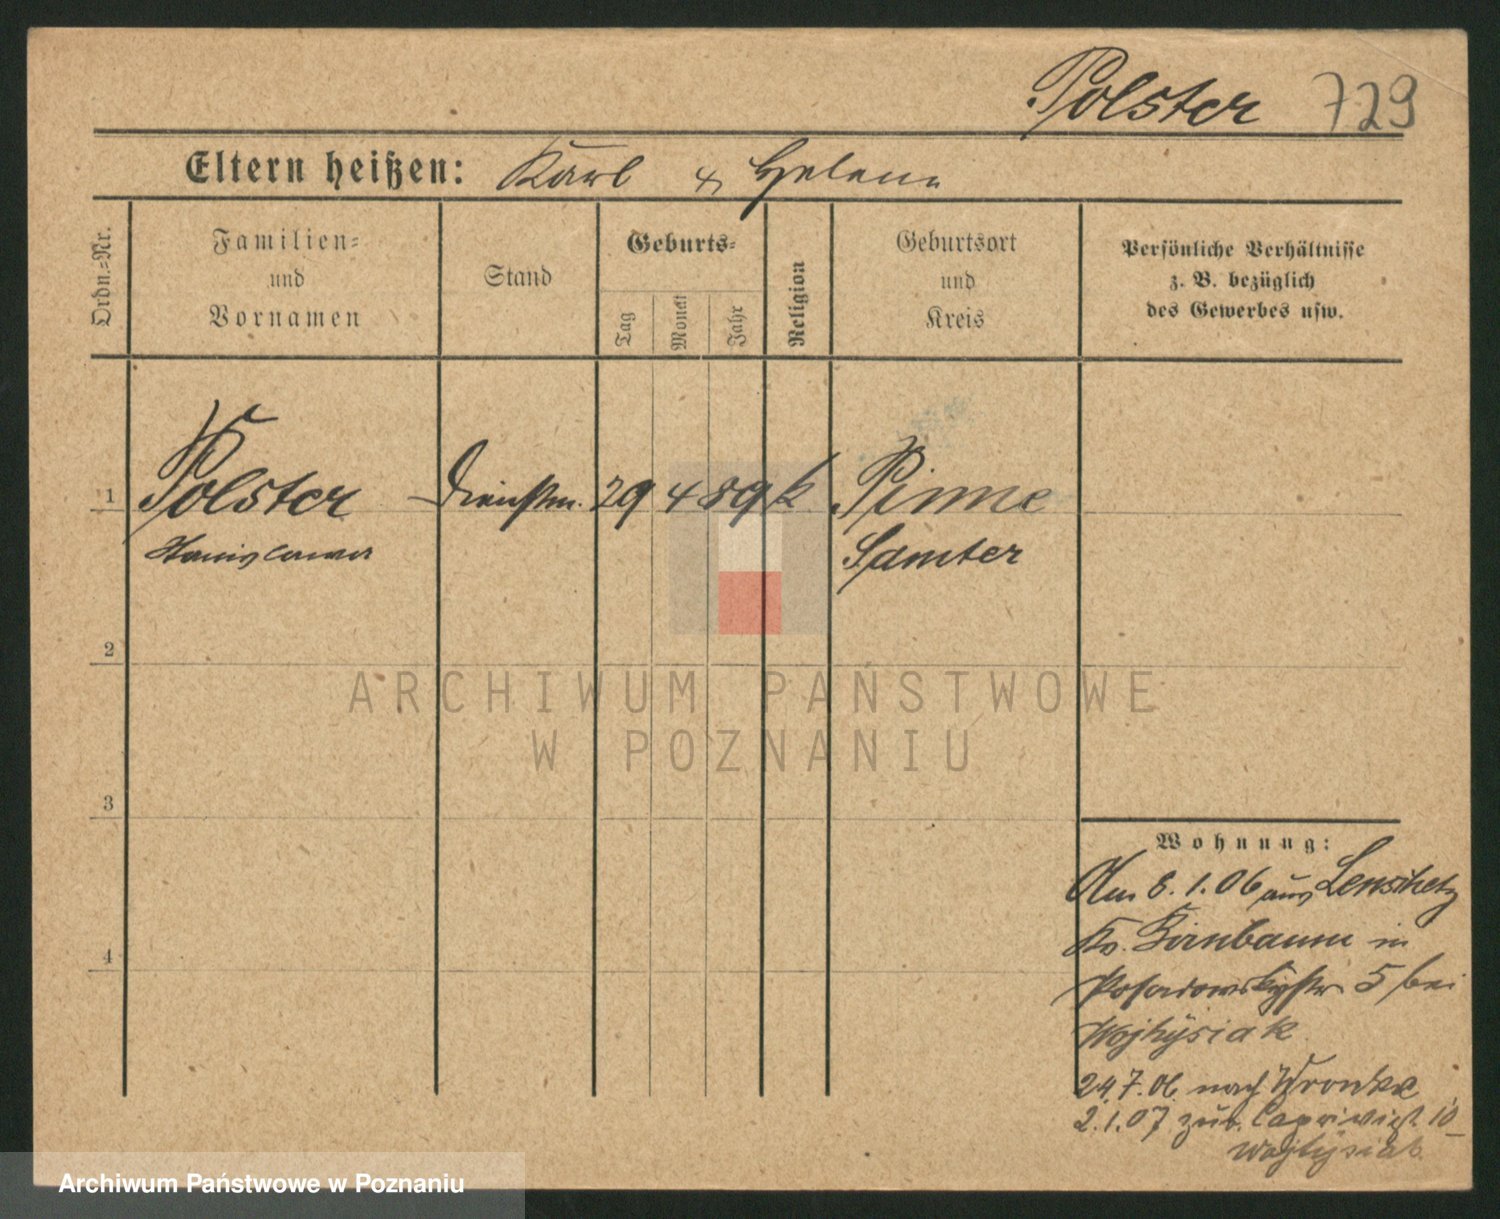 Polster 729
Eltern heißen: Karl & Helene
Ordn.-Nr.
Familien-
und
Vornamen
Stand
Geburts-
Tag
Monat
Jahr
Religion
Geburtsort
und
Kreis
Persönliche Verhältnisse
z. B. bezüglich
des Gewerbes usw.
1 Polster Dienstm. 29 4 89 k. Pinne
Stanislawa Samter
2
ARCHIWUM PAŃSTWOWE
W POZNANIU
3
Wohnung:
Am 8.1.06 aus
Kr. Birnbaum in
4
Posadowskystr. 5 bei
Wojtysiak
24.7.06. nach Wronke
2.1.07 zur. Caprivistr. 10
Wojtysiak
Archiwum Państwowe w Poznaniu